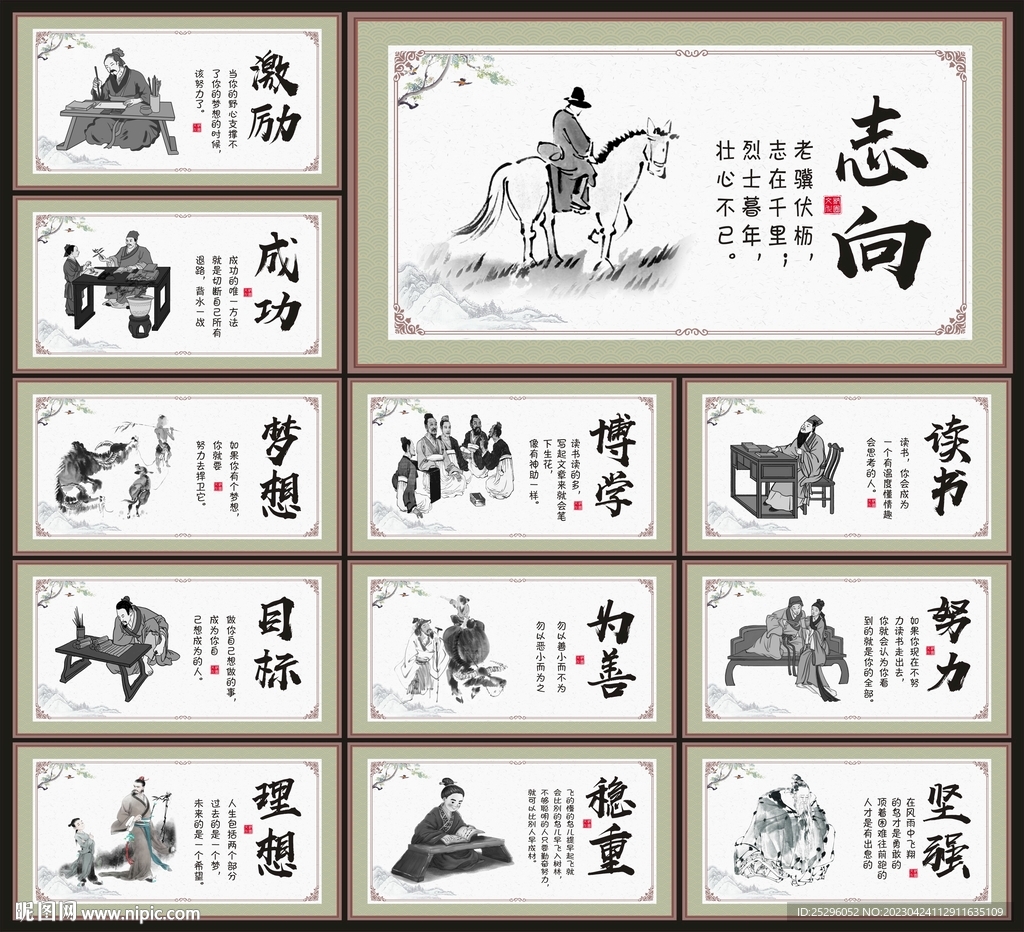 激励
当你的野心支撑不
了你的梦想的时候，
该努力了。
志向
老骥伏枥，
志在千里；
烈士暮年，
壮心不己。
成功
成功的唯一方法
就是切断自己所有
退路，背水一战
梦想
如果你有个梦想，
你就要
努力去捍卫它。
博学
读书读的多，
写起文章来就会笔
下生花，
像有神助一样。
读书
读书，你会成为
一个有温度懂情趣
会思考的人。
目标
做你自己想做的事，
成为你自
己想成为的人。
为善
勿以善小而不为
勿以恶小而为之
努力
如果你现在不努
力读书走出去，
你就会认为你看
到的就是你的全部。
理想
人生包括两个部分
过去的是一个梦，
未来的是一个希望。
稳重
飞的慢的鸟儿提早起飞就
会比别的鸟儿早飞入树林，
不够聪明的人只要勤奋努力，
就可以比别人早成材。
坚强
在风雨中飞翔
的鸟才是勇敢的
顶着困难往前跑的
人才是有出息的
昵图网 www.nipic.com
ID:25296052 NO:20230424112911635109